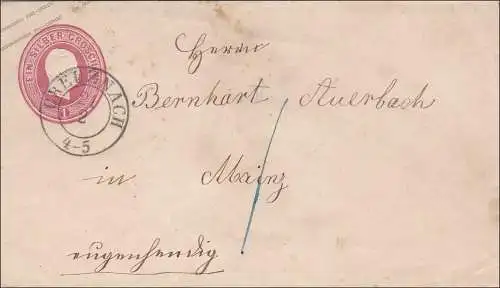 EIN SILBER GROSCH
CREUZNACH
4-5
Herrn
Bernhart Auerbach
in Mainz
eugenhendig